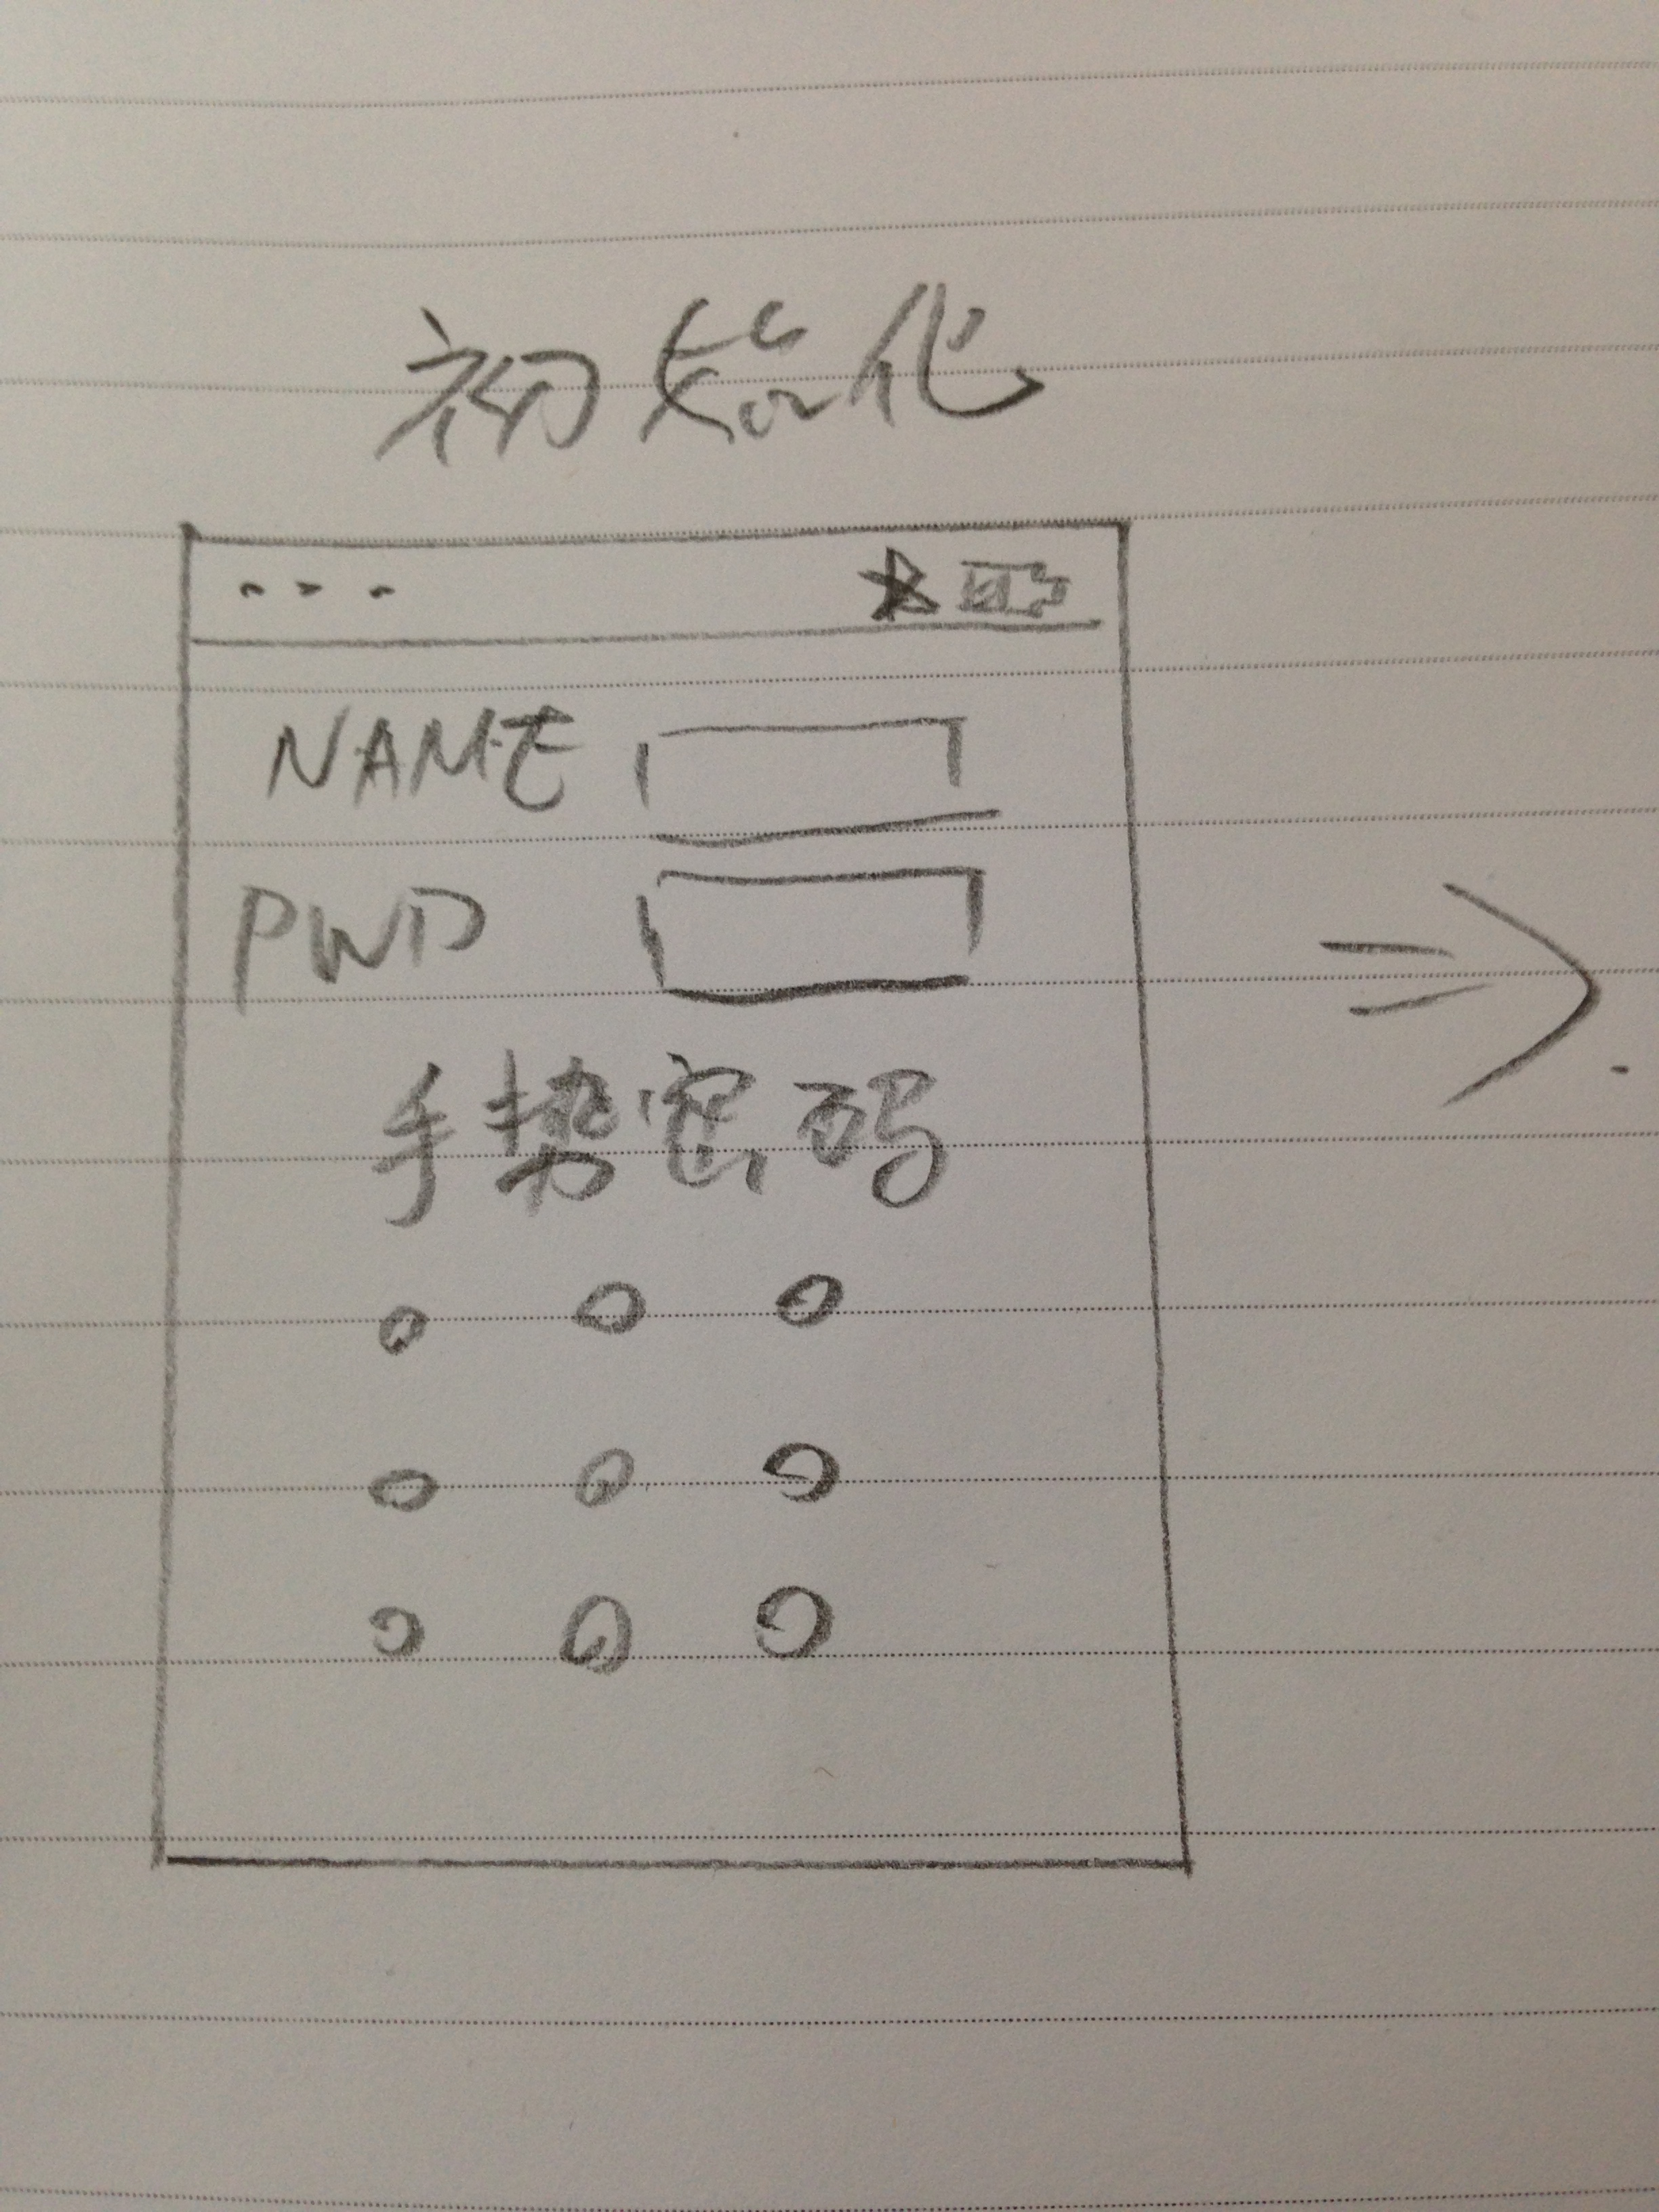 初始化
NAME
PWD
手势密码